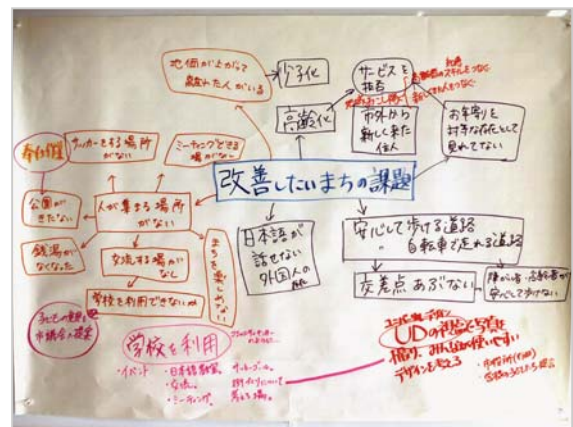 地価が上がって
離れた人がいる
少子化
サービスを
拒否
高齢化
市外から
新しく来た
住人
お年寄りを
対等な存在として
見れてない
サッカーをする場所
がない
ミーティングできる
場がなし
公園が
きたない
人が集まる場所
がない
銭湯が
なくなった
交流する場が
なし
学校を利用できないか
まちを楽しめない
改善したいまちの課題
日本語が
話せない
外国人の
安心して歩ける道路
〃 自転車で走れる道路
交差点あぶない
障がい者・高齢者が
安心して歩けない
子どもの意見を
市議会へ提案
学校を利用
・イベント
・日本語教室
・交流
・ミーティング
UDの視点で写真を
撮り、みんなが使いやすい
デザインを考える